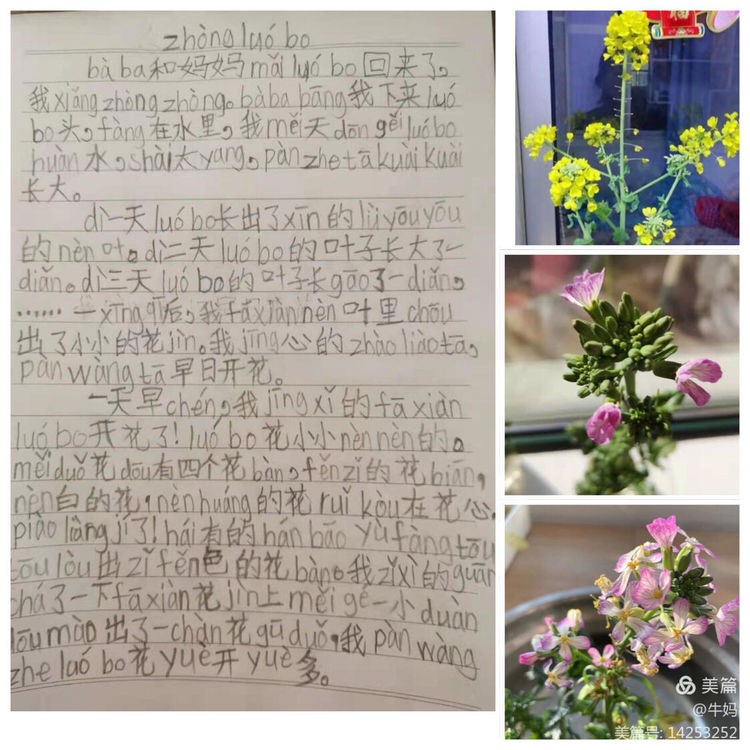 zhòng luó bo
bà ba和妈妈mǎi luó bo回来了。
我xiǎng zhòng zhòng。bà ba bāng我下来luó
bo头，fàng在水里，我měi天dōu gěi luó bo
huàn水，shài太yang，pàn zhe tā kuài kuài
长大。
dì一天luó bo长出了xīn的lǜ yōu yōu
的nèn叶。dì二天luó bo的叶子长大了一
diǎn。dì三天luó bo的叶子长gāo了一diǎn。
……一xīng qī后，我fā xiàn nèn叶里chōu
出了小小的花jìn。我jīng心的zhào liào tā，
pàn wàng tā早日开花。
一天早chén，我jīng xǐ的fā xiàn
luó bo开花了！luó bo花小小nèn nèn的。
měi duǒ花dōu有四个花bàn，fěn zǐ的花biān，
nèn白的花，nèn huáng的花ruǐ kòu在花心，
piào liàng jí了！hái有的hán bāo yù fàng tōu
tōu lòu出zǐ fěn色的花bàn。我zǐ xì的guān
chá了一下fā xiàn花jìn上měi gé一小duàn
dōu mào出了一chàn花gū duǒ，我pàn wàng
zhe luó bo花yuè开yuè多。
福
美篇
@牛妈
美篇号: 14253252